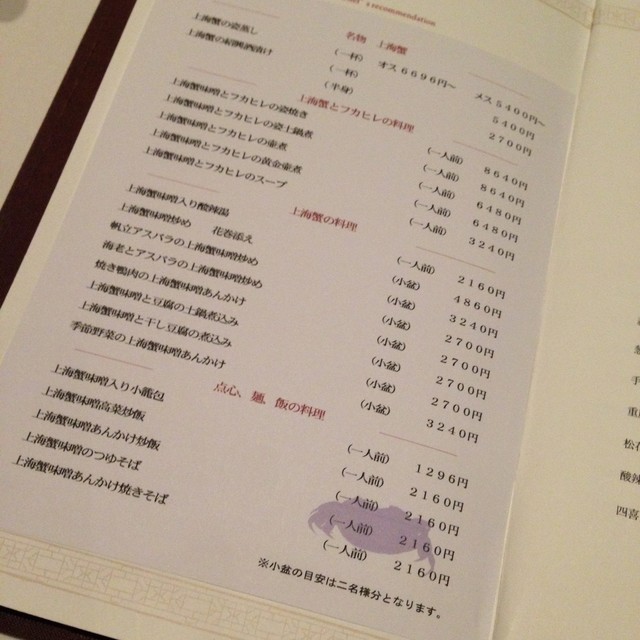 's recommendation
名物 上海蟹
上海蟹の姿蒸し (一杯) オス6696円～ メス5400円～
上海蟹の紹興酒漬け (一杯) 5400円
(半身) 2700円
上海蟹とフカヒレの料理
上海蟹味噌とフカヒレの姿焼き (一人前) 8640円
上海蟹味噌とフカヒレの姿土鍋煮 (一人前) 8640円
上海蟹味噌とフカヒレの壺煮 (一人前) 6480円
上海蟹味噌とフカヒレの黄金壺煮 (一人前) 6480円
上海蟹味噌とフカヒレのスープ (一人前) 3240円
上海蟹の料理
上海蟹味噌入り酸辣湯 (一人前) 2160円
上海蟹味噌炒め 花巻添え (小盆) 4860円
帆立アスパラの上海蟹味噌炒め (小盆) 3240円
海老とアスパラの上海蟹味噌炒め (小盆) 2700円
焼き鴨肉の上海蟹味噌あんかけ (小盆) 2700円
上海蟹味噌と豆腐の土鍋煮込み (小盆) 2700円
上海蟹味噌と干し豆腐の煮込み (小盆) 2700円
季節野菜の上海蟹味噌あんかけ (小盆) 3240円
点心、麺、飯の料理
上海蟹味噌入り小籠包 (一人前) 1296円
上海蟹味噌高菜炒飯 (一人前) 2160円
上海蟹味噌あんかけ炒飯 (一人前) 2160円
上海蟹味噌のつゆそば (一人前) 2160円
上海蟹味噌あんかけ焼きそば (一人前) 2160円
※小盆の目安は二名様分となります。
手
重
松花
酸辣
四喜